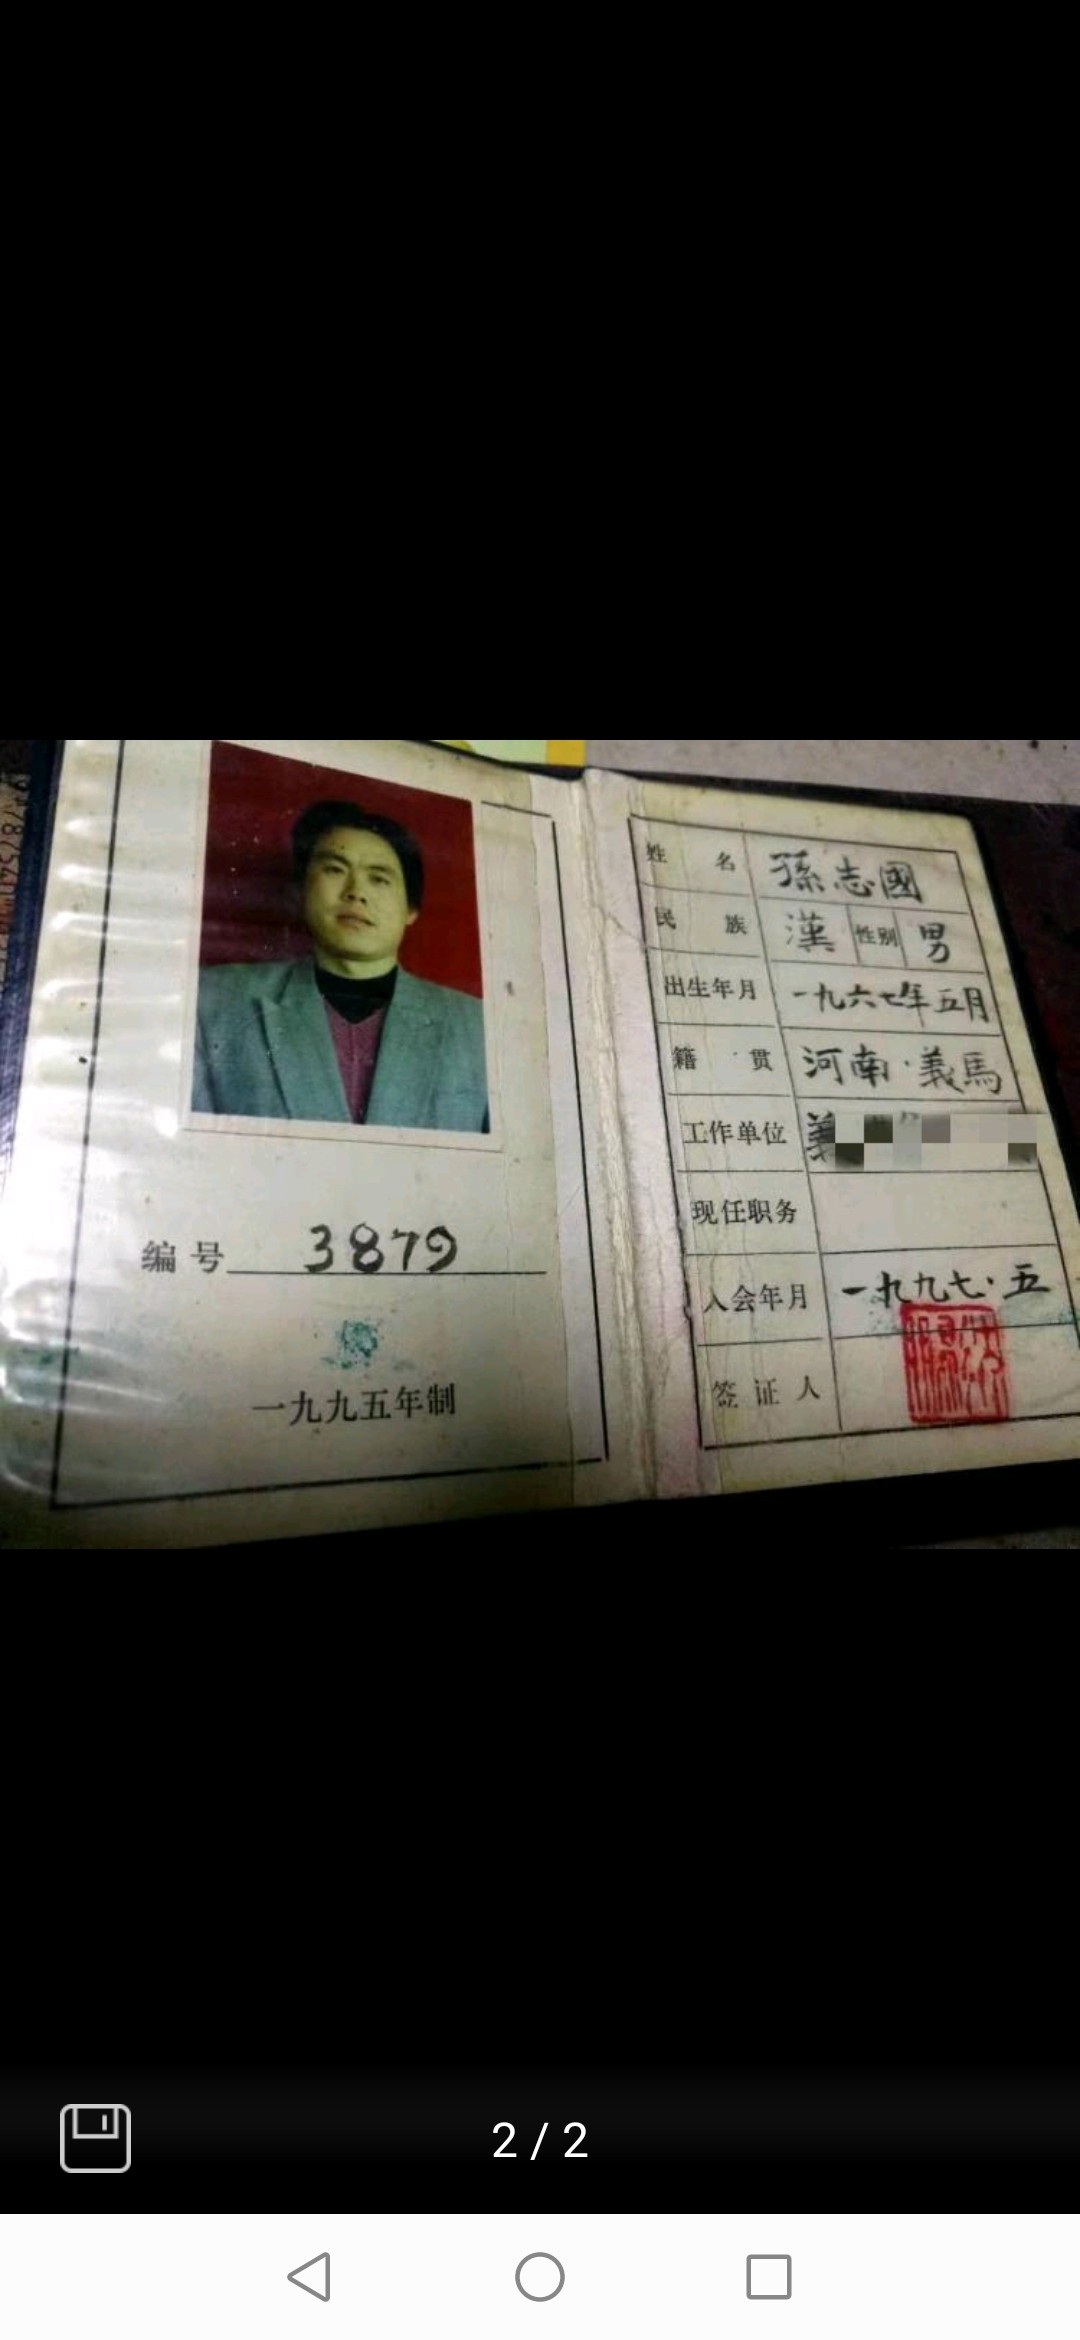 编号 3879
一九九五年制
姓名 孫志國
民族 漢 性别 男
出生年月 一九六七年五月
籍贯 河南·義馬
工作单位 義
现任职务
入会年月 一九九七·五
签证人
2 / 2